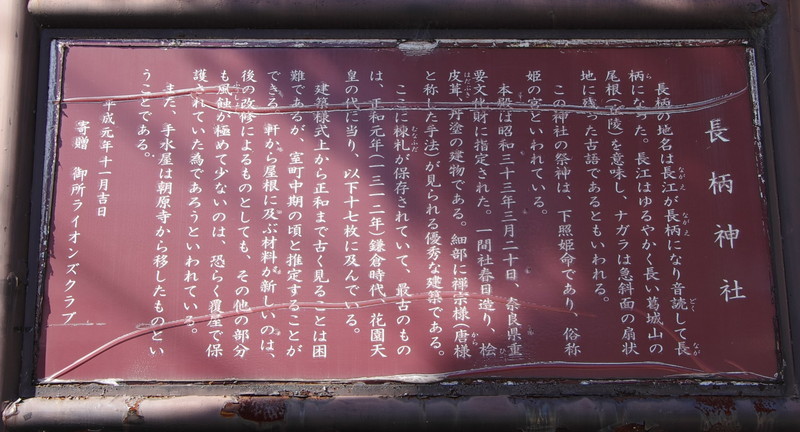 長柄神社
長柄の地名は長江が長柄になり音読して長
柄になった。長江はゆるやかく長い葛城山の
尾根(丘陵)を意味し、ナガラは急斜面の扇状
地に残った古語であるともいわれる。
この神社の祭神は、下照姫命であり、俗称
姫の宮といわれている。
本殿は昭和三十三年三月二十日、奈良県重
要文化財に指定された。一間社春日造り、桧
皮葺、丹塗の建物である。細部に禅宗様(唐様
と称した手法)が見られる優秀な建築である。
ここに棟札が保存されていて、最古のもの
は、正和元年(一三一二年)鎌倉時代、花園天
皇の代に当り、以下十七枚に及んでいる。
建築様式上から正和まで古く見ることは困
難であるが、室町中期の頃と推定することが
できる。軒から屋根に及ぶ材料が新しいのは、
後の改修によるものとしても、その他の部分
も風蝕が極めて少ないのは、恐らく覆屋で保
護されていた為であろうといわれている。
また、手水屋は朝原寺から移したものとい
うことである。
平成元年十一月吉日
寄贈 御所ライオンズクラブ